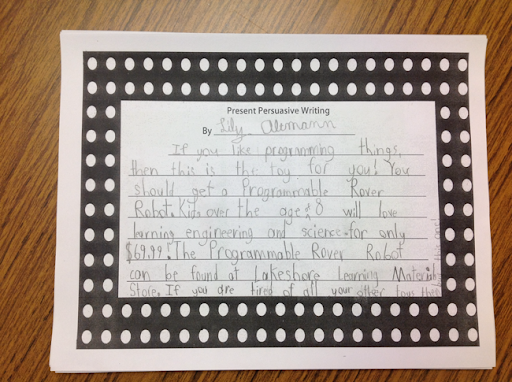 Present Persuasive Writing
By Lily
If you like programming things,
then this is the toy for you! You
should get a Programmable Rover
Robot. Kids over the age of 8 will love
learning engineering and science for only
$69.99! The Programmable Rover Robot
can be found at Lakeshore Learning Materials
Store. If you are tired of all your other toys then